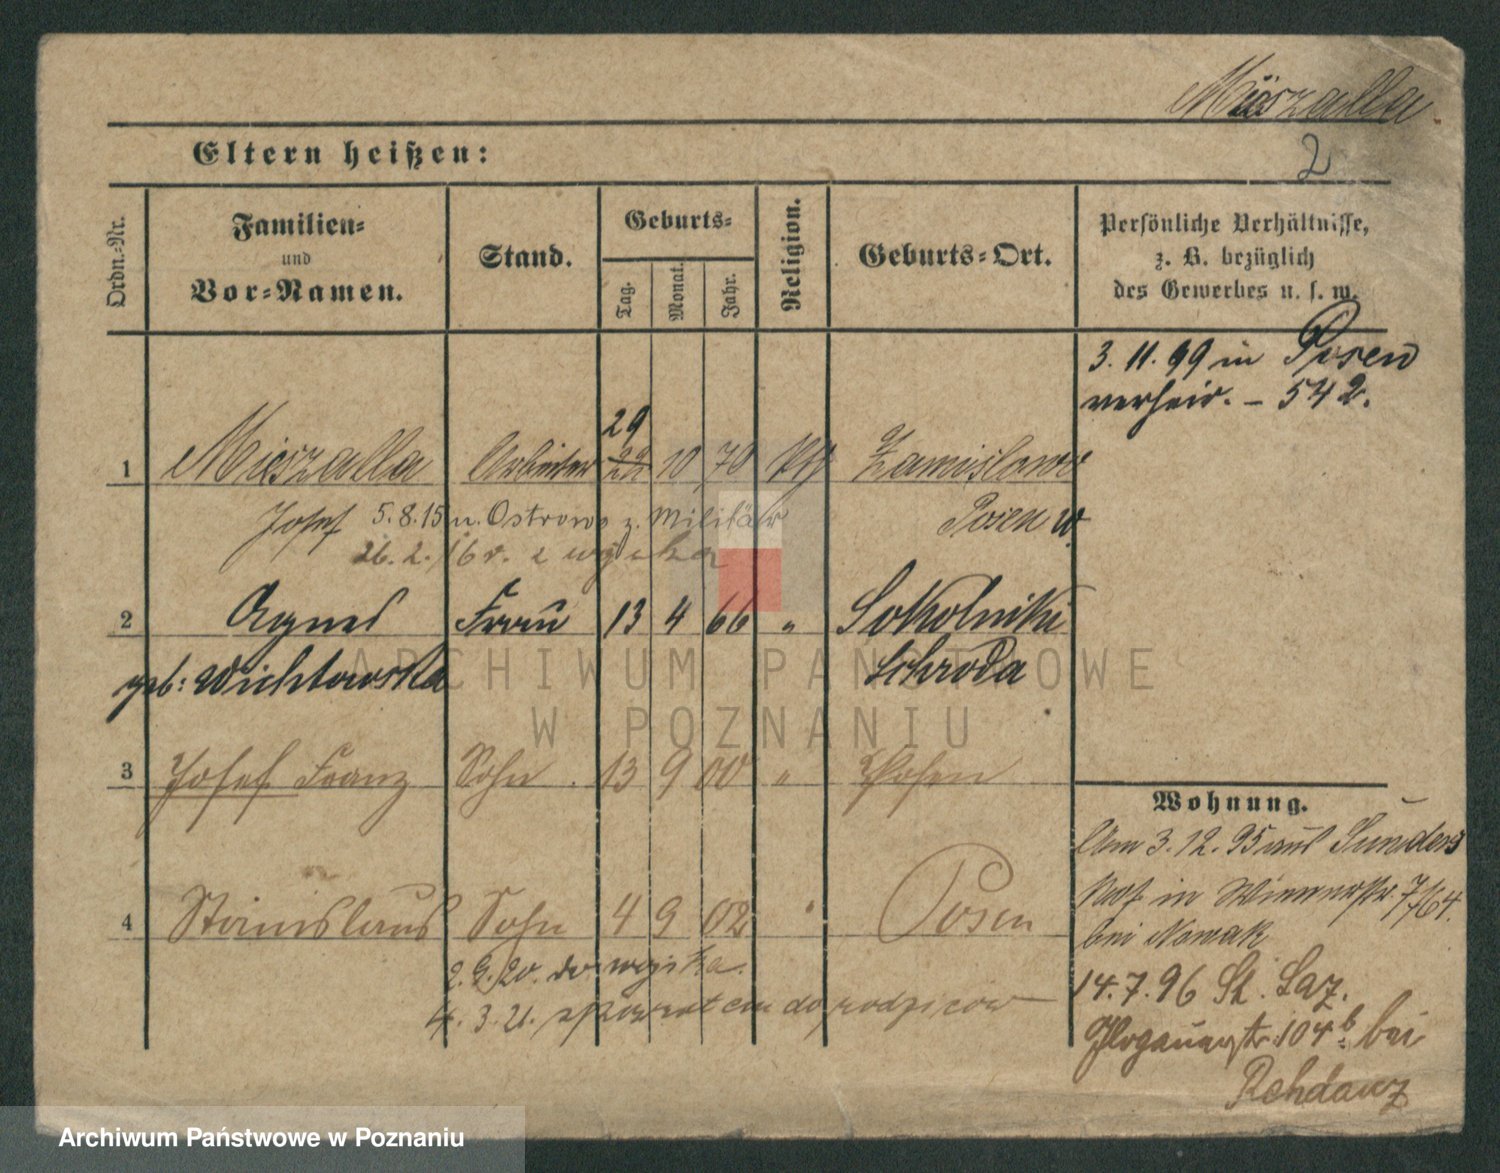 Mieszalla
2
Eltern heißen:
Ordn.-Nr.
Familien-
und
Vor-Namen.
Stand.
Geburts-
Tag.
Monat.
Jahr.
Religion.
Geburts-Ort.
Persönliche Verhältnisse,
z. B. bezüglich
des Gewerbes u. s. w.
3. 11. 99 in Posen
verheir. – 542.
29
1 Mieszalla Arbeiter 10 70 Zamislowo
Josef 5.8.15 n. Ostrowo z. Militär Posen W.
26.2.16 v. z wojska
2 Agnes Frau 13 4 66 " Sokolniki
geb: Wichtowska Schroda
3 Josef Franz Sohn. 13 9 00 " Posen
4 Stanislaus Sohn 4 9 02 " Posen
2.9.20. do wojska.
4.3.21. z do rodziców
Wohnung.
Am 3.12.95 aus
in Wienerstr. 7/64.
bei Nowak
14.7.96 St. Laz.
Glogauerstr. 104b bei
Rehdanz
ARCHIWUM PAŃSTWOWE
W POZNANIU
Archiwum Państwowe w Poznaniu